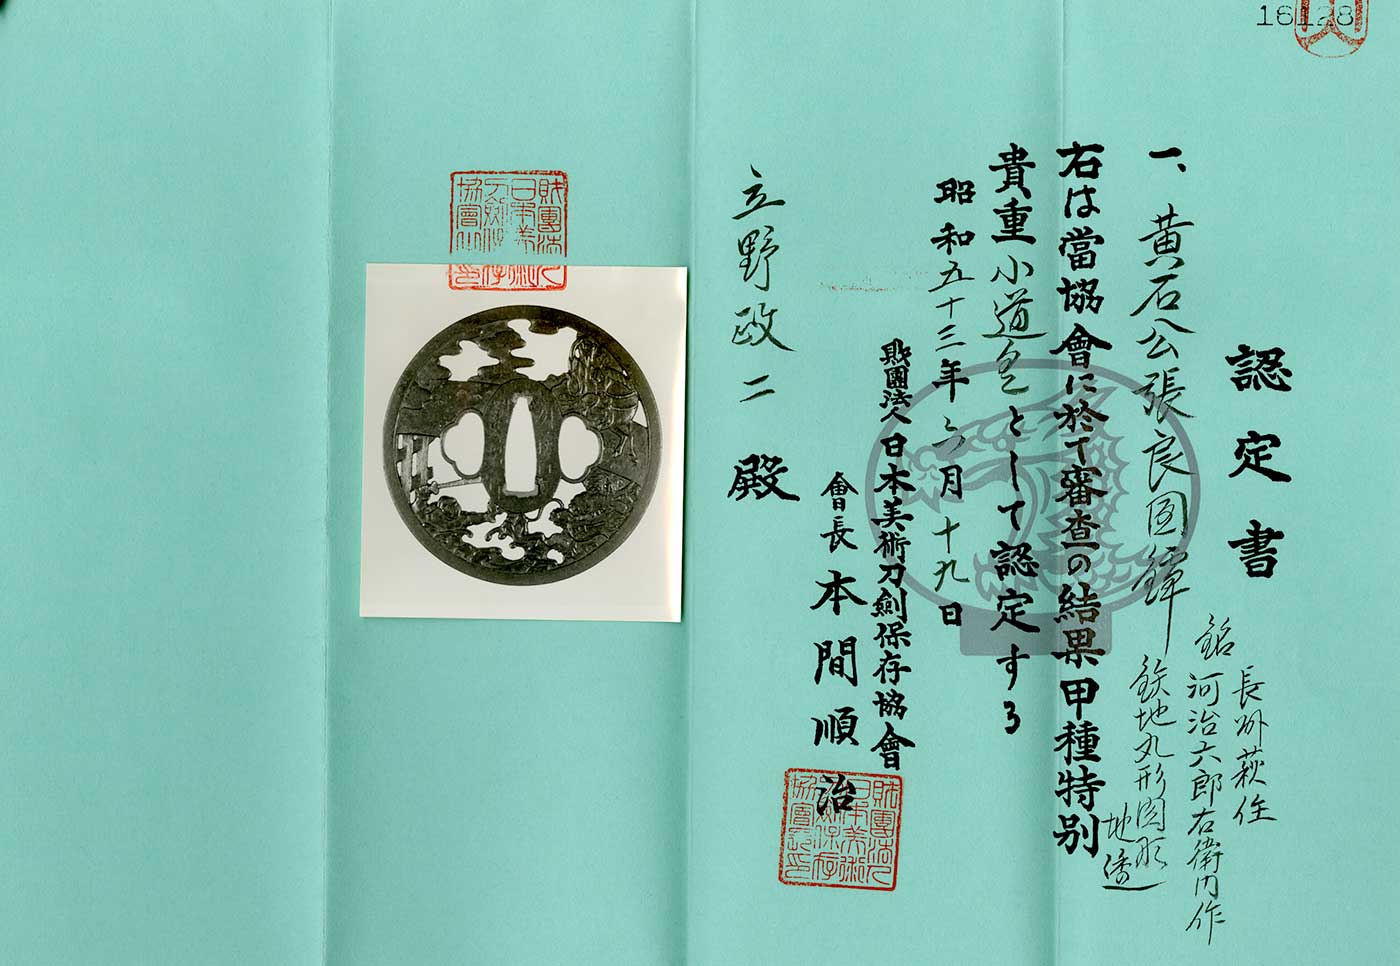 16128
認定書
一、黄石公張良図鐔
銘 長州萩住
河治六郎右衛門作
鉄地丸形図取
地透
右は當協會に於て審査の結果甲種特別
貴重小道具として認定する
昭和五十三年 月十九日
財團法人日本美術刀劍保存協會
會長 本間順治
立野政二殿
財團法人日本美術刀劍保存協會